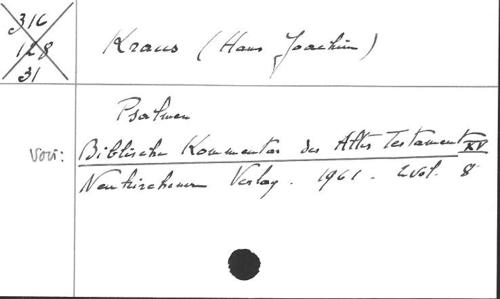 316
128
31
Kraus (Hans Joachim)
Psalmen
Voir: Biblischer Kommentar des Altes Testament XV
Neukirchener Verlag. 1961. 2 vol. 8°